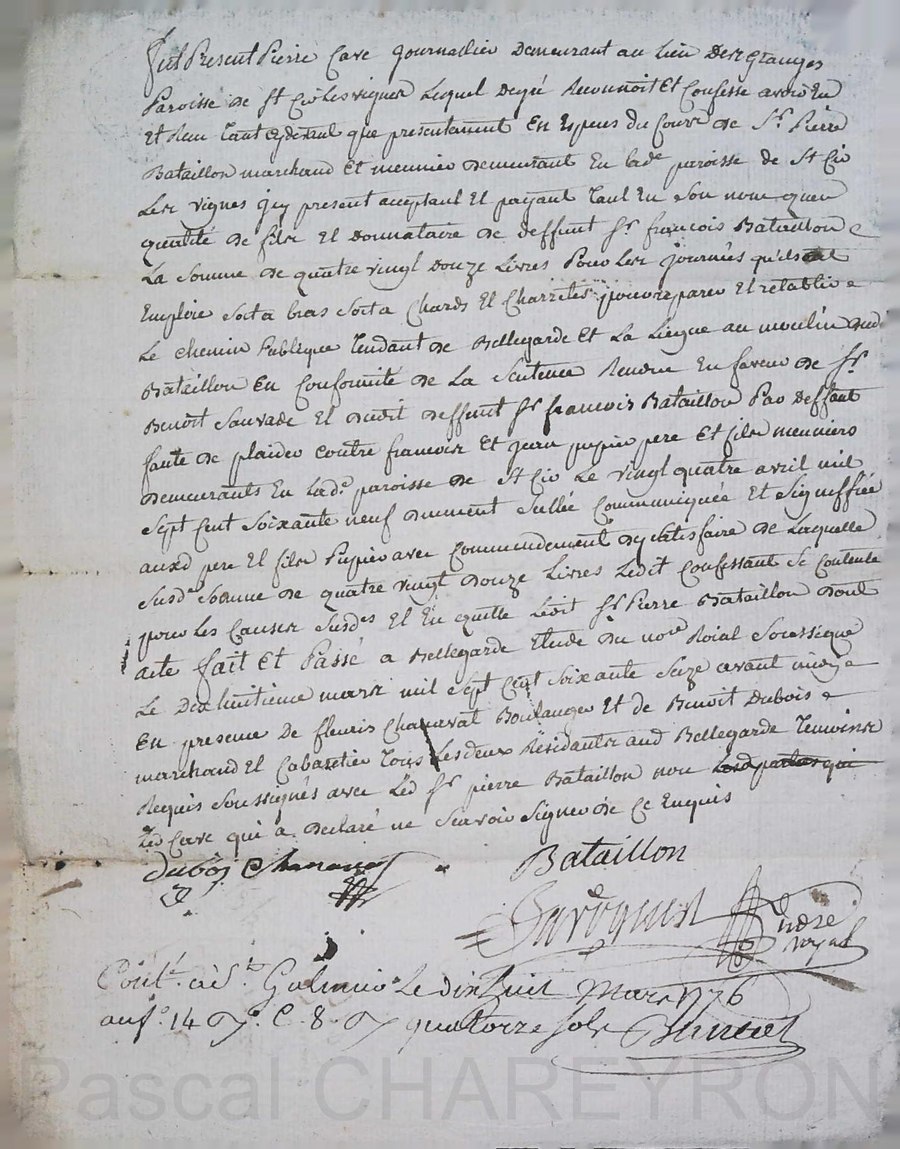 fut Present Pierre Cave journallier Demeurant au lieu Des granges
Paroisse de St Cir les vignes Lequel degré Reconnoit Et Confesse avoir Eu
Et Receu tant cydevant que presentement En Especes du Cours de Sr. Pierre
Bataillon marchand Et meunier demeurant En lade paroisse de St Cir
Les vignes icy present acceptant Et payant tant En Son nom quen
qualité de fils Et Donnataire de deffunt Sr. françois Bataillon
La Somme de quatre vingt Douze Livres Pour Les journées qu'il
Emploié Soit a bras Soit a Chards Et Charrétes pour reparer Et retablir
Le Chemin Publique tendant de Bellegarde Et La Liegue au moulin dud
Bataillon En Conformité de La Sentence Rendue En faveur de Sr.
Benoit Sauvade Et dudit deffunt Sr. francois Bataillon Par Deffaut
faute de plaider Contre francois Et jean pupier pere Et fils meuniers
demeurants En Lade. paroisse de St Cir Le vingt quatre avril mil
Sept Cent Soixante neuf duement Sellée Communiquée Et Signiffiée
auxd pere Et fils Pupier avec Commendement dy Satisfaire de Laquelle
Susde Somme de quatre vingt Douze Livres Ledit Confessant Se Contente
pour Les Causes Susdes Et En quitte Ledit Sr. Pierre Bataillon Dont
acte fait Et Passé a Bellegarde Etude Du nore Roial Soussigné
Le Dix huitieme mars mil Sept Cent Soixante Seize avant midy
En presence De fleuris Chanavat Boulanger Et de Benoit Dubois
marchand Et Cabaretier tous Lesdeux Résidants aud Bellegarde temoins
Requis Soussignés avec Led Sr. pierre Bataillon non
Led Cave qui a declaré ne Scavoir Signer de Ce Enquis
dubois Chanavat
Bataillon
nore
royal
Contlé. a St. Galmier Le dix huit Mars 1776
au fo. 14 Vo. C. 8. quatorze Sols
Pascal CHAREYRON